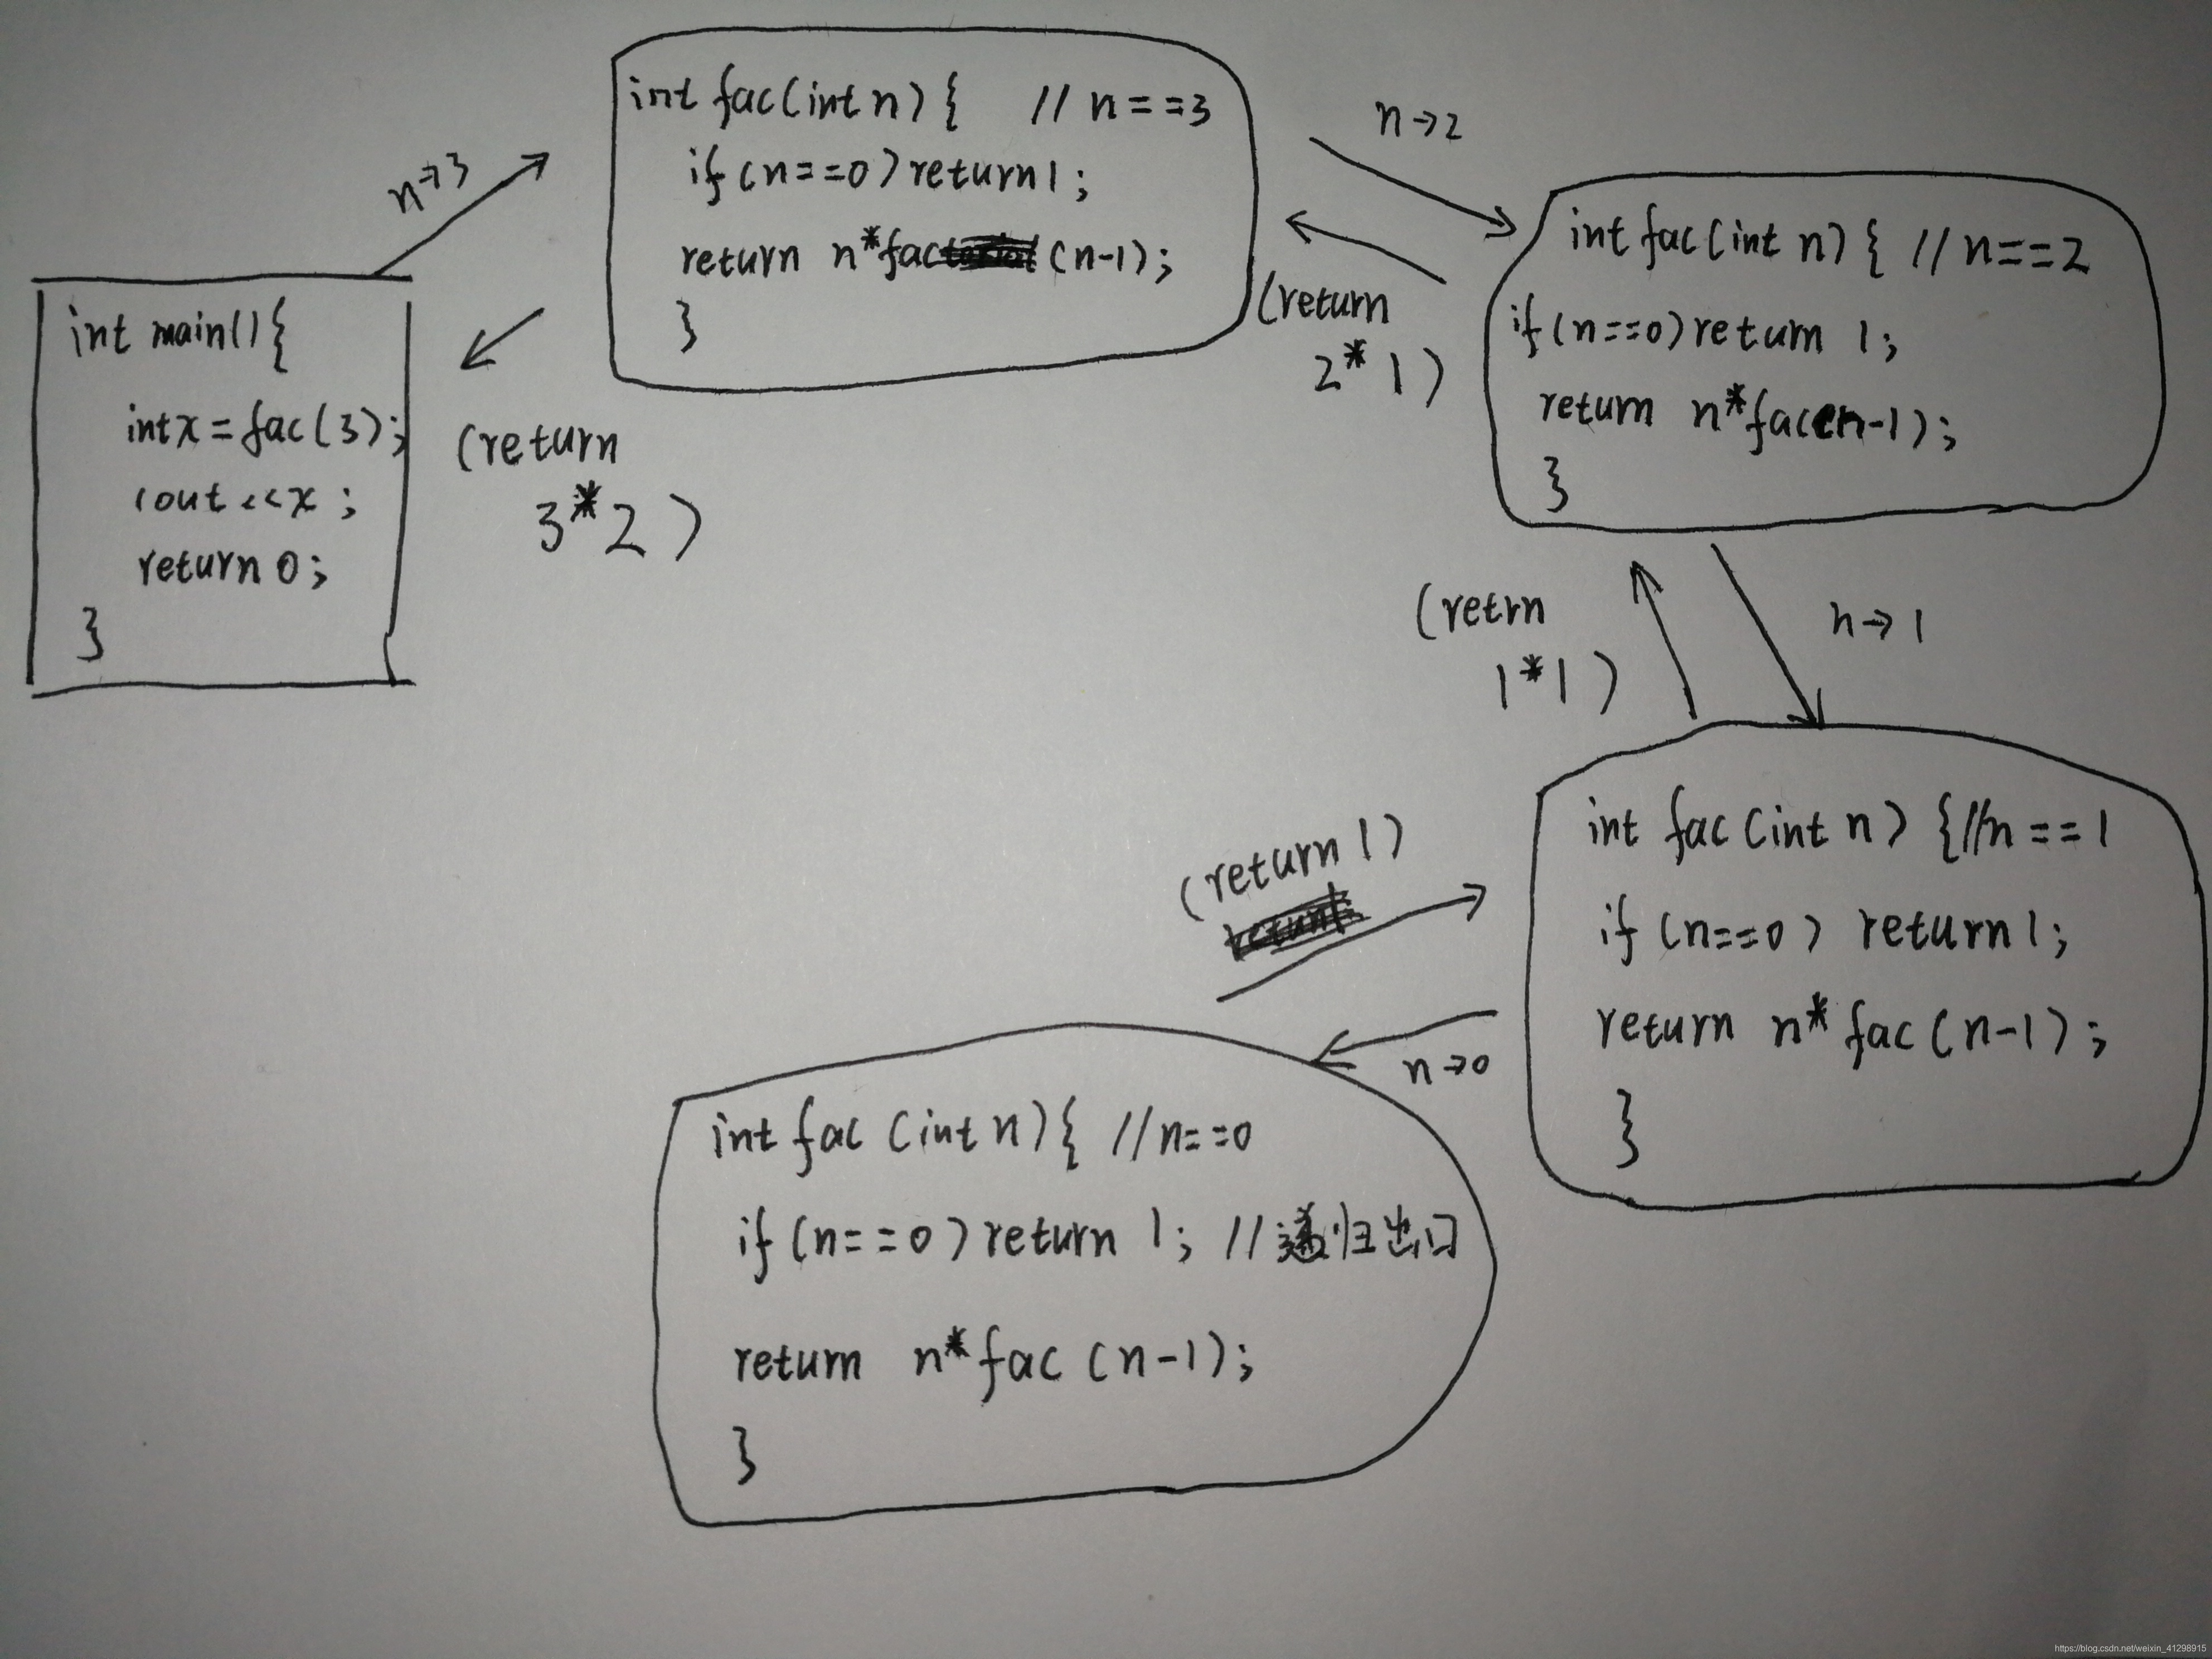 int main(){
int x = fac(3);
cout << x ;
return 0;
}
n→3
int fac(int n) { // n==3
if (n==0) return 1;
return n*fac (n-1);
}
(return
3*2)
n→2
(return
2*1)
int fac(int n) { // n==2
if (n==0) return 1;
return n*fac(n-1);
}
(retrn
1*1)
n→1
int fac (int n) { //n==1
if (n==0) return 1;
return n* fac (n-1);
}
(return 1)
n→0
int fac (int n) { //n==0
if (n==0) return 1; //递归出口
return n* fac (n-1);
}
https://blog.csdn.net/weixin_41298915